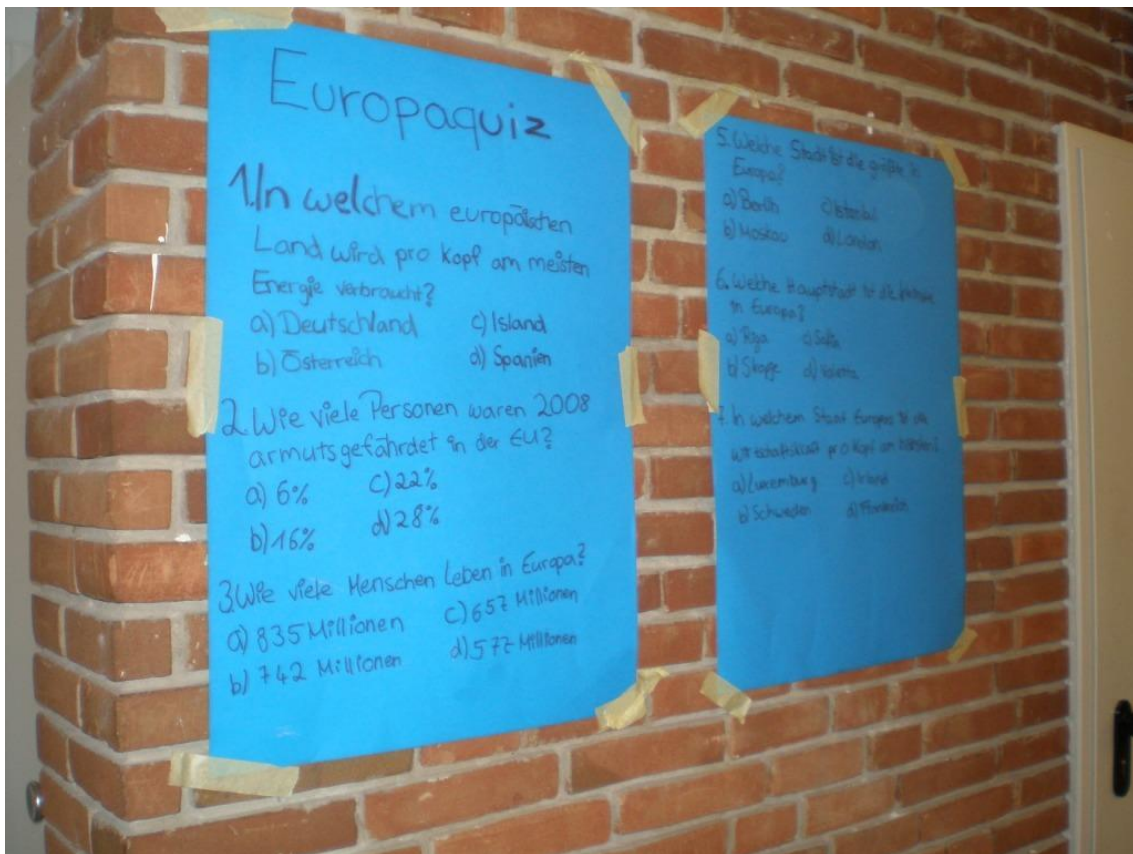 Europaquiz
1. In welchem europäischen
Land wird pro Kopf am meisten
Energie verbraucht?
a) Deutschland c) Island
b) Österreich d) Spanien
2. Wie viele Personen waren 2008
armutsgefährdet in der EU?
a) 6% c) 22%
b) 16% d) 28%
3. Wie viele Menschen Leben in Europa?
a) 835 Millionen c) 657 Millionen
b) 742 Millionen d) 577 Millionen
5. Welche Stadt ist die größte in
Europa?
a) Berlin c) Istanbul
b) Moskau d) London
6. Welche Hauptstadt ist die
in Europa?
a) Riga c)
b) Skopje d) Valetta
7. In welchem Staat Europas ist die
wirtschaftskraft pro Kopf am höchsten?
a) Luxemburg c) Irland
b) Schweden d) Frankreich